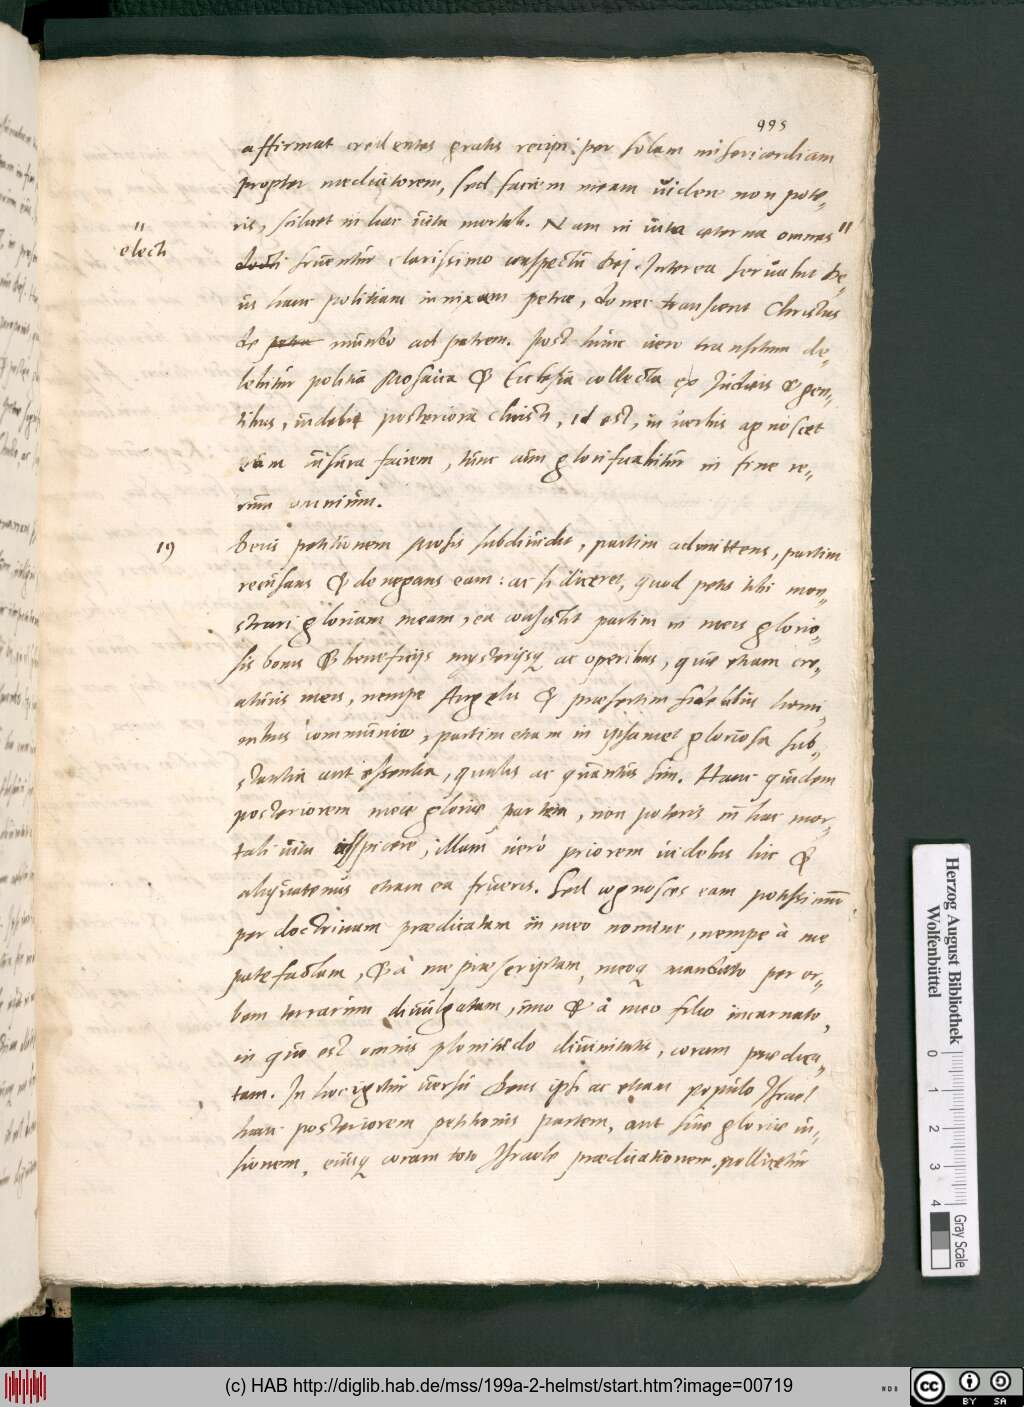 995
affirmat credentes gratis recipi per solam misericordiam
propter mediatorem, sed faciem meam videre non pote,,
ris, scilicet in hac vita mortali. Nam in vita æterna omnes "
" electi
docti fruentur clarissimo conspectu Dei. Interea servabit De,,
us hanc politiam innixam petræ, donec transierit Christus
de petra mundo ad patrem. Post hunc vero transitum de,,
lebitur politia Mosaica & Ecclesia collecta ex Iudæis & gen,,
tibus, videbit posteriora Christi, id est, in verbis agnoscet
eum visura faciem, tunc cum glorificabitur in fine re,,
rum omnium.
19 Deus petitionem Mosis subdividit, partim admittens, partim
recusans & denegans eam: ac si diceret, quod petis tibi mon,,
strari gloriam meam, ea consistit partim in meis glorio,,
sis bonis & beneficijs mysterijsq ac operibus, quæ etiam cre,,
aturis meis, nempe Angelis & præsertim fidelibus homi,,
nibus communico, partim etiam in ipsamet gloriosa sub,,
stantia aut essentia, qualis ac quantus sim. Hanc quidem
posteriorem meæ gloriæ partem, non poteris in hac mor,,
tali vita aspicere, illam vero priorem videbis hic &
aliquatenus etiam ea frueris. Sed cognosces eam potissimum
per doctrinam prædicatam in meo nomine, nempe à me
patefactam, & à me præscriptam, meoq mandato per or,,
bem terrarum divulgatam, imo & à meo filio incarnato,
in quo est omnis plenitudo divinitatis, coram prædica,,
tam. In hoc igitur versu Deus ipsi ac etiam populo Israel
hanc posteriorem petitionis partem, aut suæ gloriæ vi,,
sionem, eiusq coram toto Israele prædicationem pollicetur
Herzog August Bibliothek
Wolfenbüttel
0 1 2 3 4
Gray Scale
(c) HAB http://diglib.hab.de/mss/199a-2-helmst/start.htm?image=00719
cc BY SA